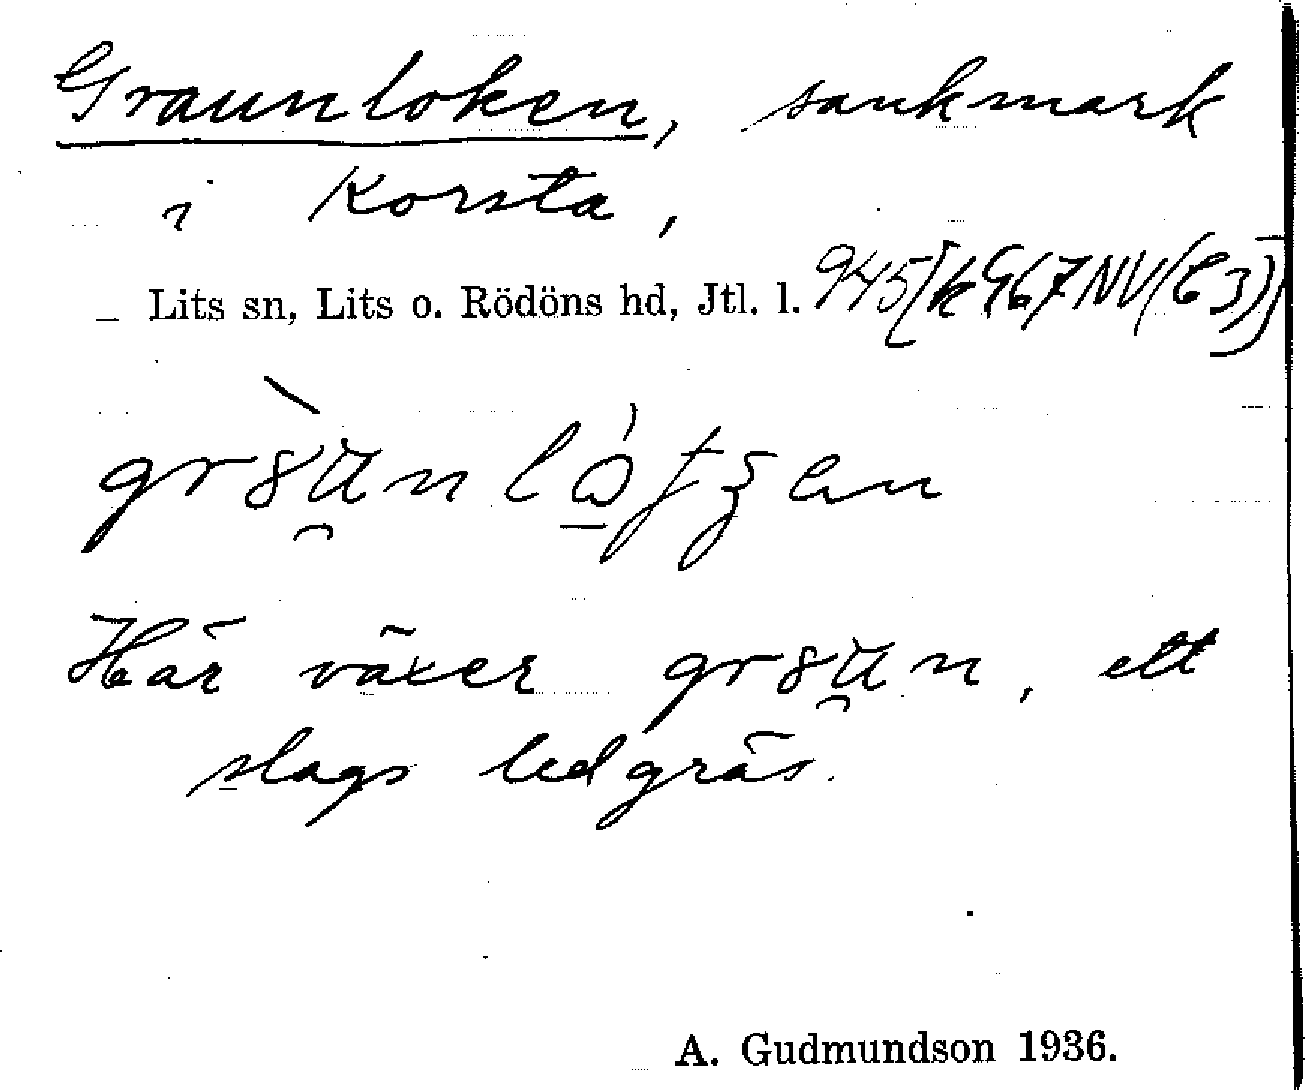 Graunloken, sankmark
i Korsta,
Lits sn, Lits o. Rödöns hd, Jtl. l. 945[k967NV(C3)]
Här växer , ett
slags ledgräs.
A. Gudmundson 1936.